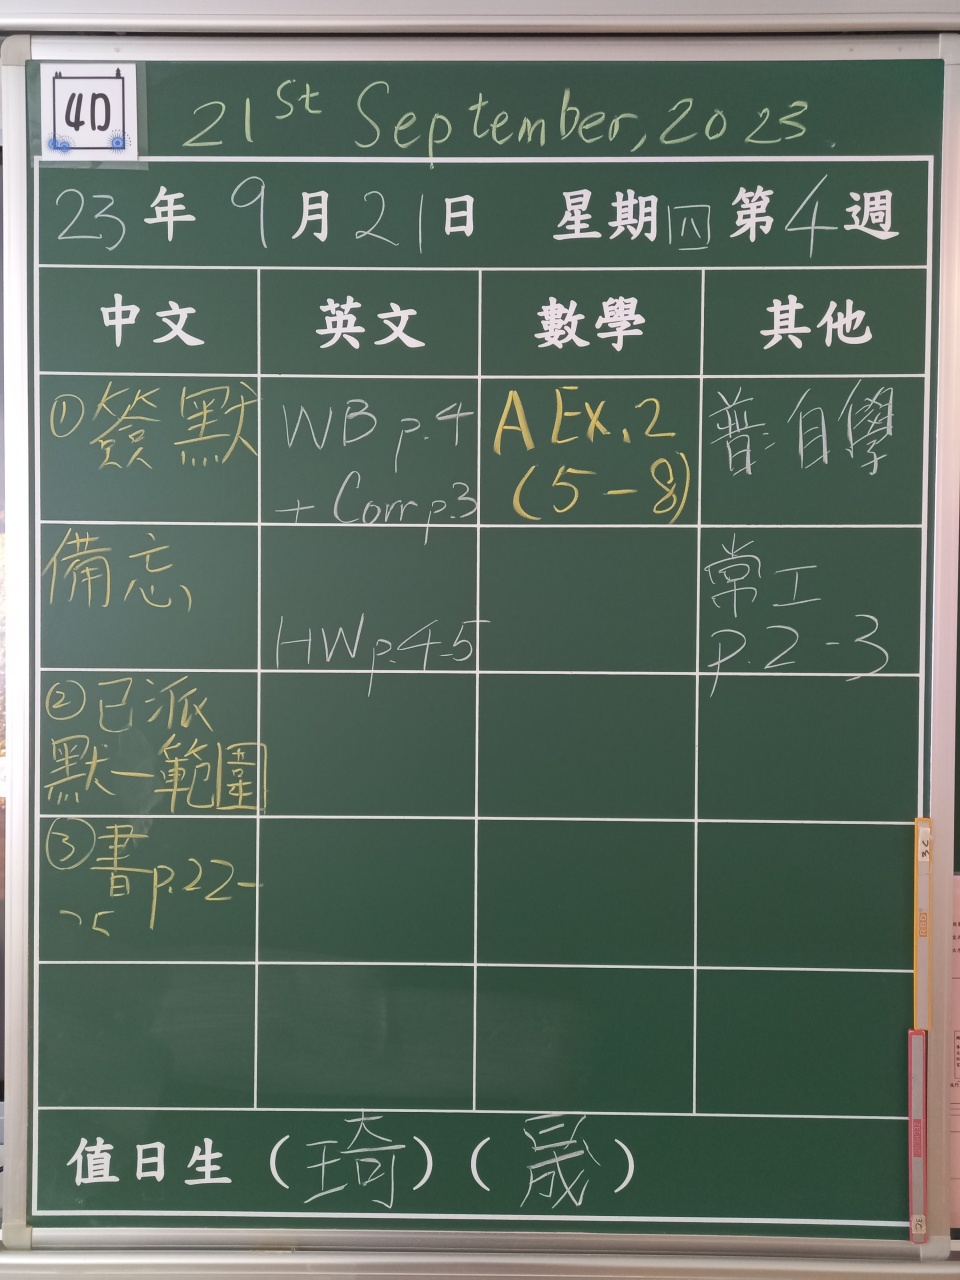 4D
21st September, 2023.
23年 9月21日 星期四 第4週
中文 英文 數學 其他
①簽默 備忘、
②已派 默一範圍
③書p.22-25
WB p.4
+ Corr p.3
HW p.4-5
A Ex.2
(5-8)
普:自學
常工
p.2-3
值日生(琦)(晟)